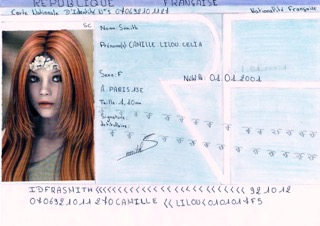 REPUBLIQUE FRANÇAISE
Carte Nationale D'Identité N°: 070692101127 Nationalité Française
SC
Nom: Smith
Prénom(s) CAMILLE LILOU CELIA
Sexe: F Né(e) le: 01.01.2001
A. PARIS 13E
Taille: 1,10m
Signature
du titulaire:
IDFRASMITH<<<<<<<<<<<<<<<<<<<<<< 921012
0706921011270CAMILLE <<LILOU<010101 F5